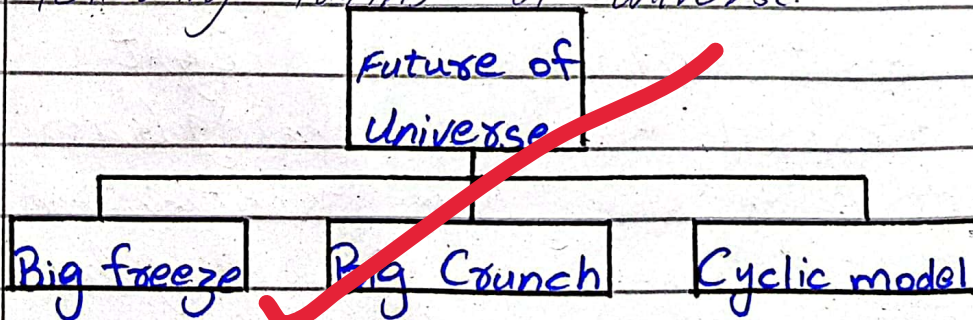 universe.
Future of
Universe
Big freeze
Big Crunch
Cyclic model